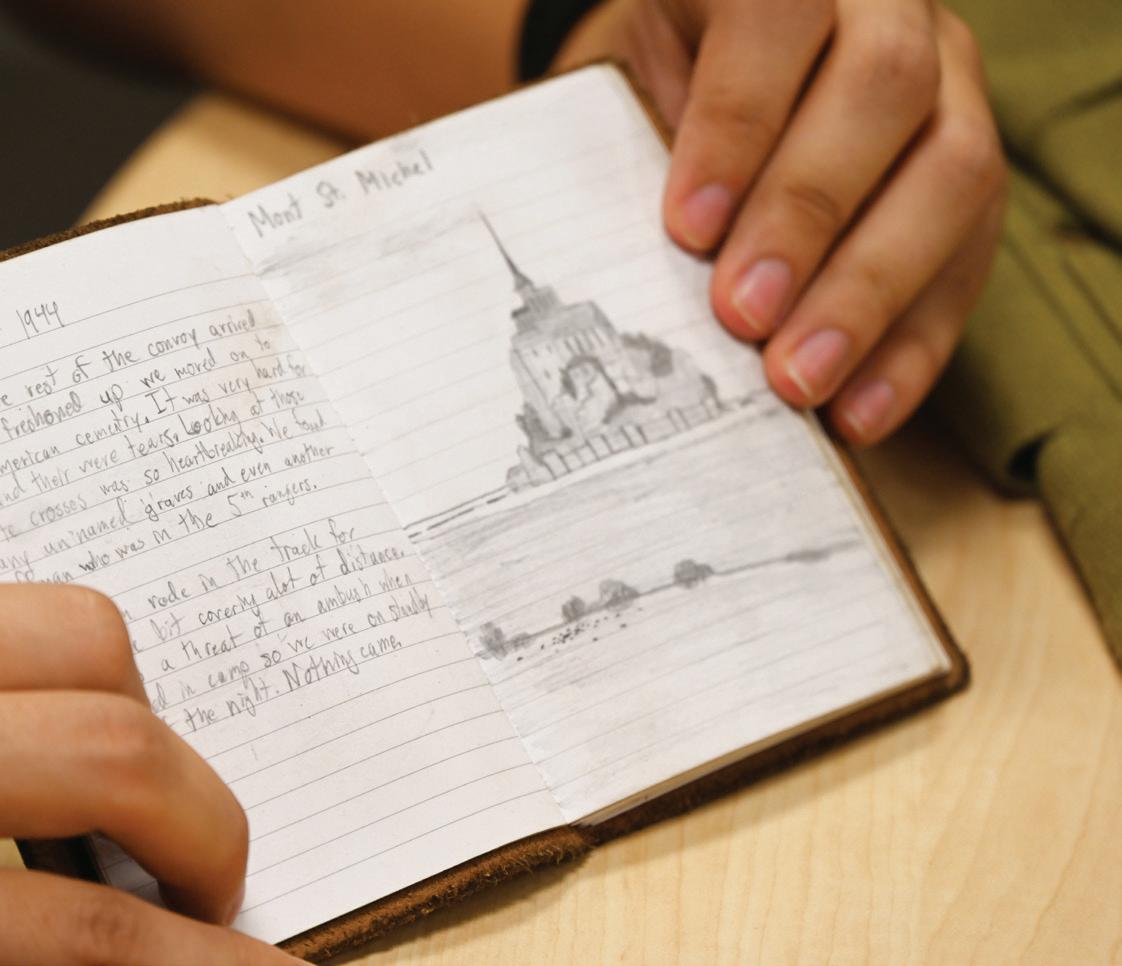 1944
rest of the convoy arrived
freshoned up we moved on to
merican cemetry. It was very hard for
nd their were tears. Looking at those
te crosses was so heartbreaking. We found
any un'named graves and even another
man who was in the 5th rangers.
rode in the track for
bit covering alot of distance.
a threat of an ambush when
ed in camp so we were on standby
the night. Nothing came.
Mont St. Michel